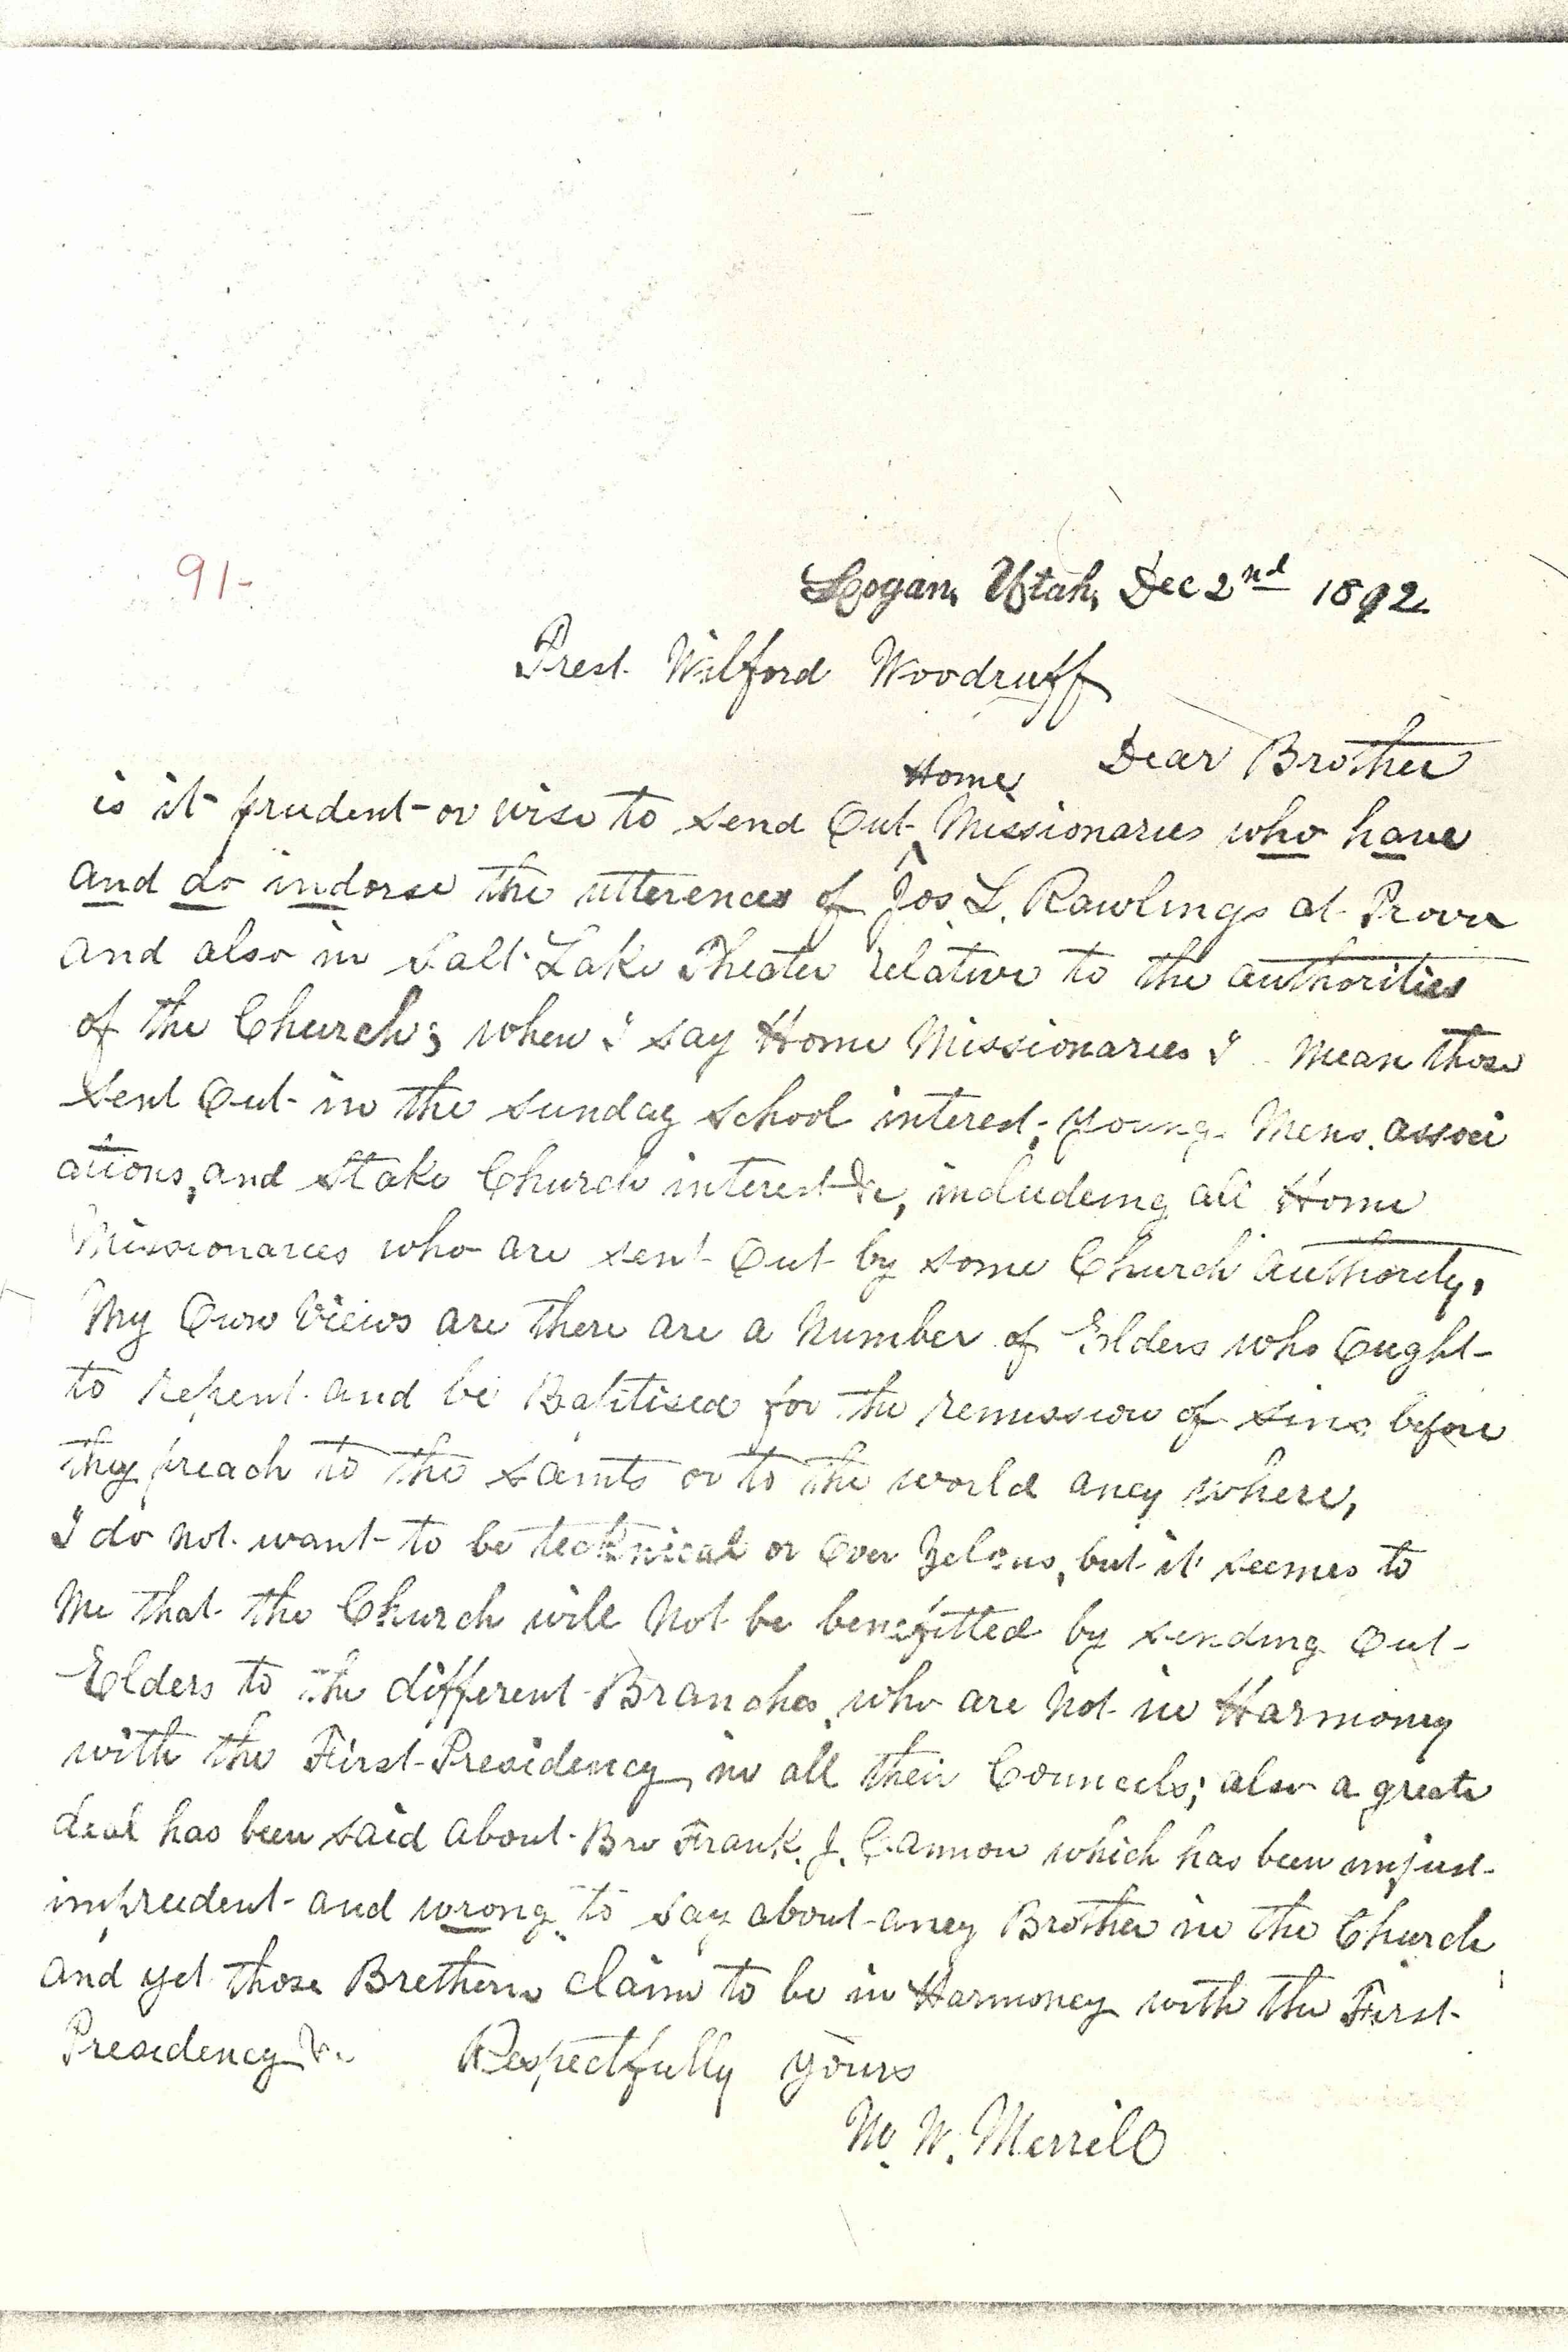 91-
Logan, Utah, Dec 2nd 1892
Prest. Wilford Woodruff
Dear Brother
Home
is it prudent or wise to send Out ^ Missionaries who have
and do indorse the utterences of Jos L. Rawlings at Provo
and also in Salt Lake Theater relative to the authorities
of the Church; when I say Home Missionaries I mean those
sent Out in the sunday school interest, young Mens associ
ations, and Stake Church interest &c, includeing all Home
Missionaries who are sent Out by some Church authority,
My Own Views are there are a Number of Elders who Ought
to repent and be Baptised for the remission of sins before
they preach to the saints or to the world aney where,
I do not want to be technical or Over Zelous, but it seemes to
Me that the Church will Not be benefitted by sending Out
Elders to the different Branches, who are Not in Harmoney
with the First Presidency in all their Councels; also a greate
deal has been said about Bro Frank. J. Cannon which has been unjust
imprudent and wrong to say about aney Brother in the Church
and yet those Brethern claim to be in Harmoney with the First
Presidency &c. Respectfully yours
M. W. Merrill